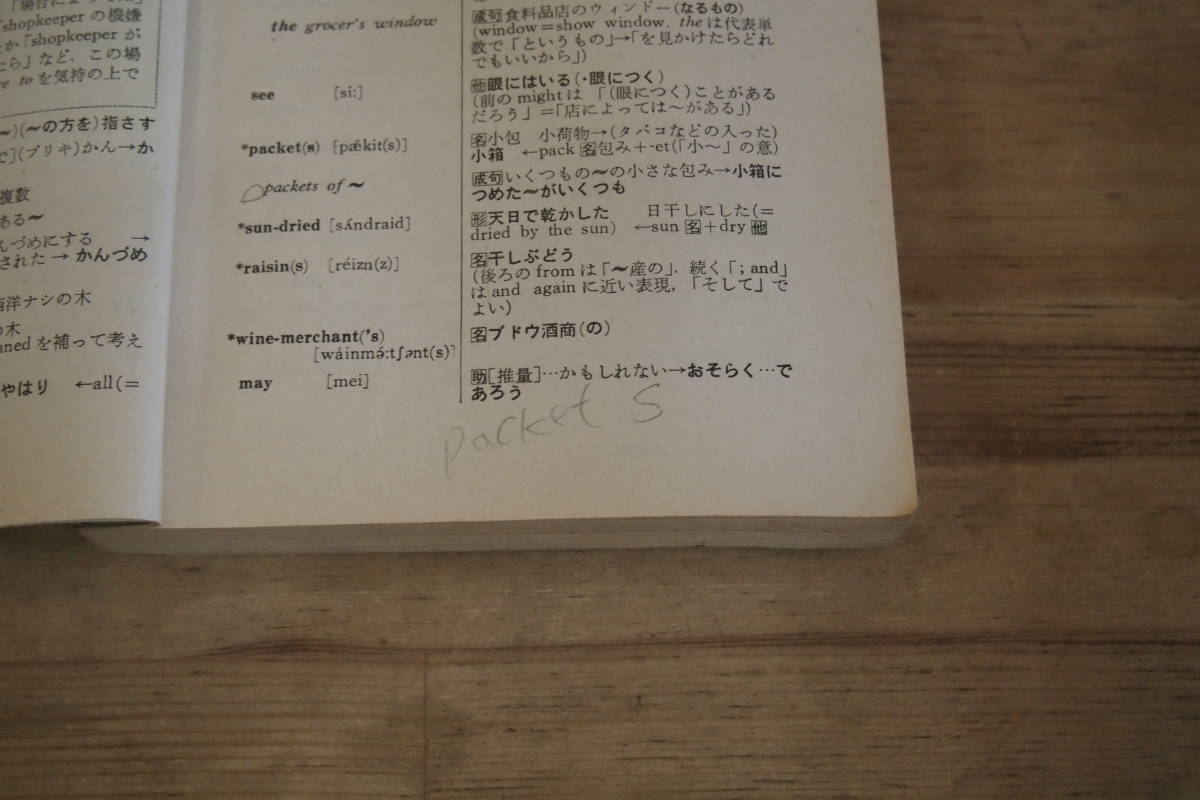 「shopkeeper の機嫌
か「shopkeeper が
たら」など. この場
re to を気持の上で
~)(~の方を)指さす
で](ブリキ)かん→か
複数
ある~
んづめにする →
された → かんづめ
西洋ナシの木
の木
nned を補って考え
やはり ←all(=
the grocer's window
成句食料品店のウィンドー(なるもの)
(window=show window. the は代表単
数で「というもの」→「を見かけたらどれ
でもいいから」)
see [siː]
他眼にはいる(・眼につく)
(前の might は 「(眼につく)ことがある
だろう」=「店によっては~がある」)
*packet(s) [pǽkit(s)]
名小包 小荷物→(タバコなどの入った)
小箱 ←pack 名包み+-et(「小~」の意)
packets of ~
成句いくつもの~の小さな包み→小箱に
つめた~がいくつも
*sun-dried [sʌ́ndraid]
形天日で乾かした 日干しにした(=
dried by the sun) ←sun 名+dry 他
*raisin(s) [réizn(z)]
名干しぶどう
(後ろの from は「~産の」. 続く「; and」
は and again に近い表現, 「そして」で
よい)
*wine-merchant('s)
[wáinmə́ːtʃənt(s)]
名ブドウ酒商(の)
may [mei]
助[推量]…かもしれない→おそらく…で
あろう
packet s